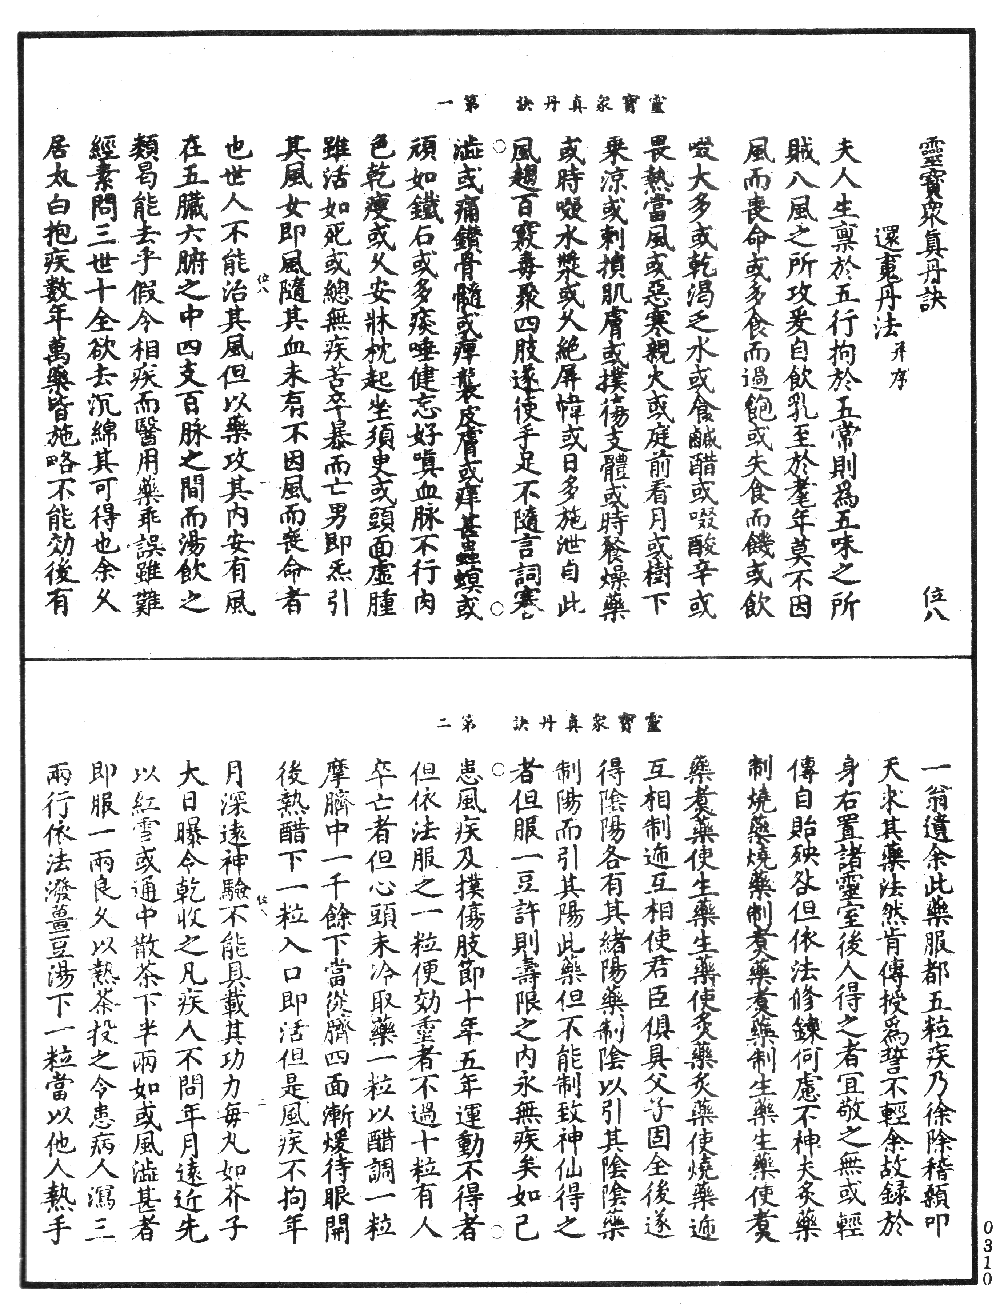 靈寶衆真丹訣　第一
靈寶衆真丹訣　位八
還魂丹法并序
夫人生禀於五行拘於五常則為五味之所
賊八風之所攻爰自飲乳至於耄年莫不因
風而喪命或多食而過飽或失食而饑或飲
啜大多或乾渴乏水或食鹹醋或啜酸辛或
畏熱當風或惡寒親火或庭前看月或樹下
乘涼或刺損肌膚或撲傷支體或時餐燥藥
或時啜水漿或久絶屏幃或日多施泄自此
風趨百竅毒聚四肢遂使手足不隨言詞蹇
澁或痛鑽骨髓或痺襲皮膚或痒甚蟲螟或
頑如鐵石或多痰唾健忘好嗔血脉不行肉
色乾瘦或久安牀枕起坐須臾或頭面虛腫
雖活如死或總無疾苦卒暴而亡男即炁引
其風女即風隨其血未有不因風而喪命者
也世人不能治其風但以藥攻其内安有風
在五臟六腑之中四支百脉之間而湯飲之
類曷能去乎假令相疾而醫用藥乖誤雖難
經素問三世十全欲去沉綿其可得也余久
居太白抱疾數年萬藥皆施略不能効後有
位八
一
靈寶衆真丹訣　第二
一翁遺余此藥服都五粒疾乃徐除稽顙叩
天求其藥法然肯傳授為誓不輕余故録於
身右置諸靈室後人得之者宜敬之無或輕
傳自貽殃咎但依法修鍊何慮不神夫炙藥
制燒藥燒藥制煑藥煑藥制生藥生藥使煑
藥煑藥使生藥生藥使炙藥炙藥使燒藥遞
互相制遞互相使君臣俱具父子固全後遂
得陰陽各有其緒陽藥制陰以引其陰陰藥
制陽而引其陽此藥但不能制致神仙得之
者但服一豆許則壽限之内永無疾矣如已
患風疾及撲傷肢節十年五年運動不得者
但依法服之一粒便効重者不過十粒有人
卒亡者但心頭未冷取藥一粒以醋調一粒
摩臍中一千餘下當從臍四面漸煖待眼開
後熱醋下一粒入口即活但是風疾不拘年
月深遠神驗不能具載其功力每丸如芥子
大日曝令乾收之凡疾人不問年月遠近先
以紅雪或通中散茶下半兩如或風澁甚者
即服一兩良久以熱茶投之令患病人瀉三
兩行依法潑薑豆湯下一粒當以他人熱手
位八
二
0310